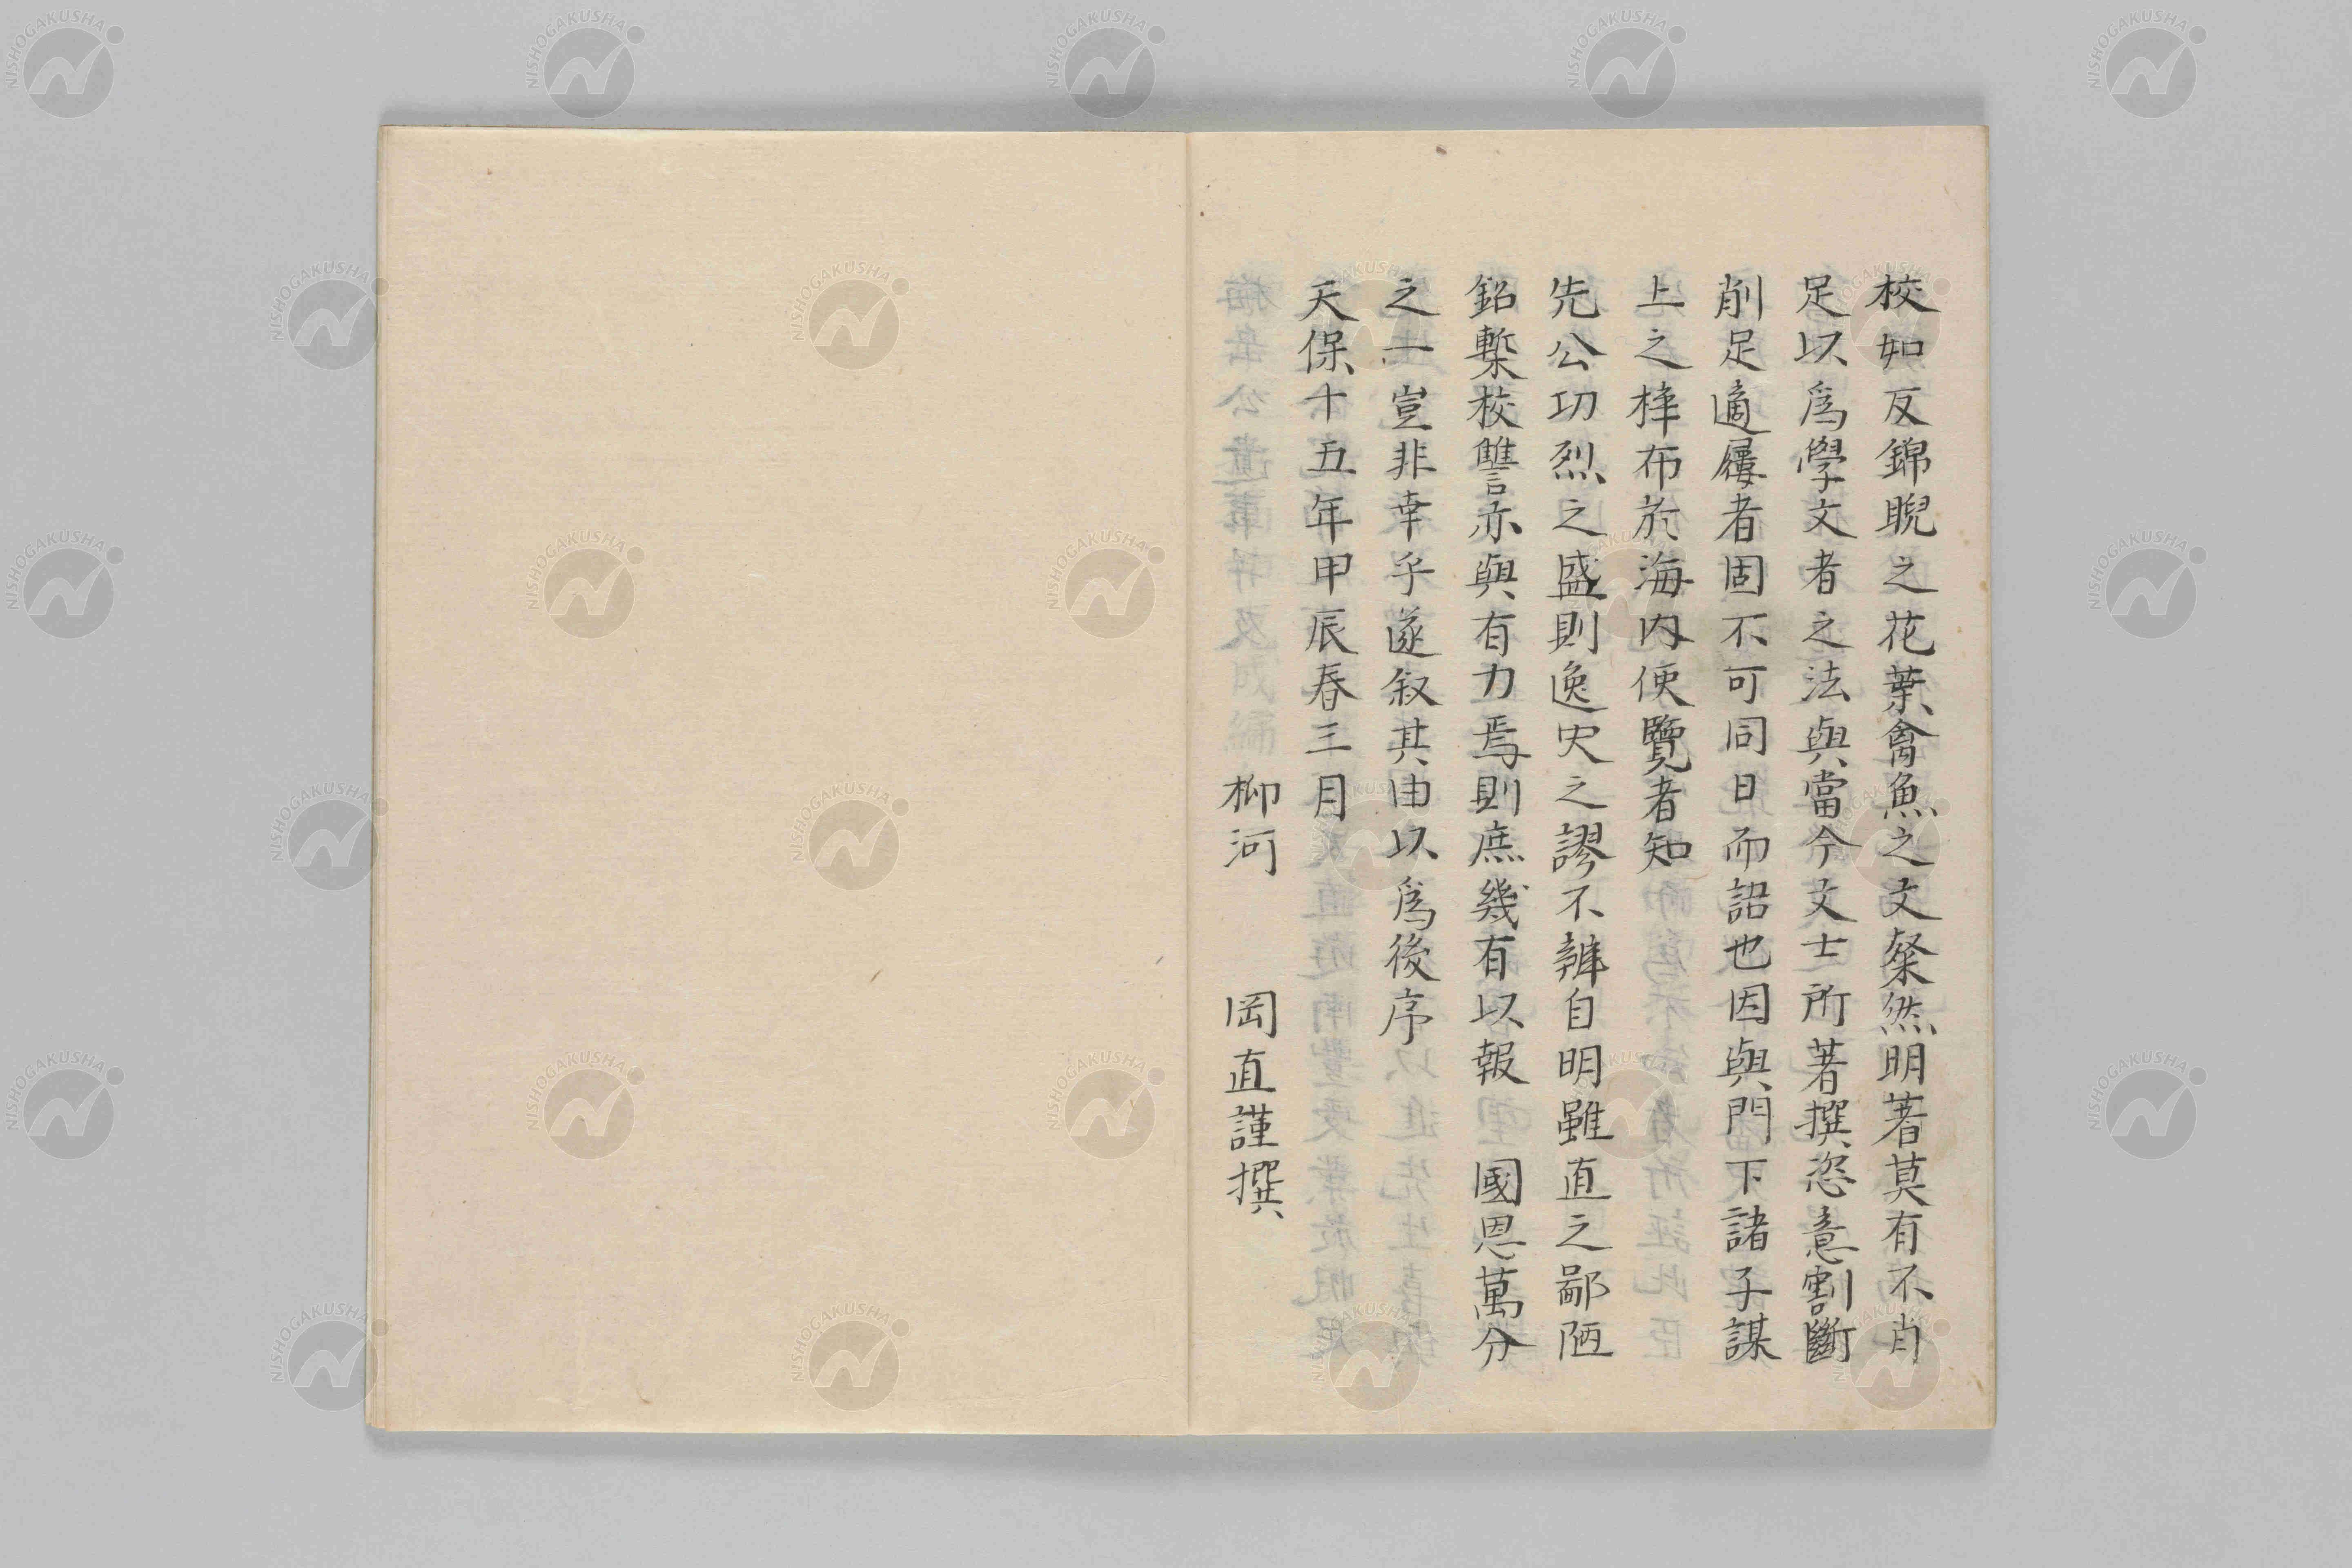 校如反錦睨之花葉禽魚之文粲然明著莫有不肖
足以爲學文者之法與當今文士所著撰恣意割斷
削足適屨者固不可同日而語也因與門下諸子謀
上之梓布於海内便覽者知
先公功烈之盛則逸史之謬不辨自明雖直之鄙陋
鉛槧校讐亦與有力焉則庶幾有以報 國恩萬分
之一豈非幸乎遂叙其由以爲後序
天保十五年甲辰春三月
柳河 岡直謹撰
NISHOGAKUSHA